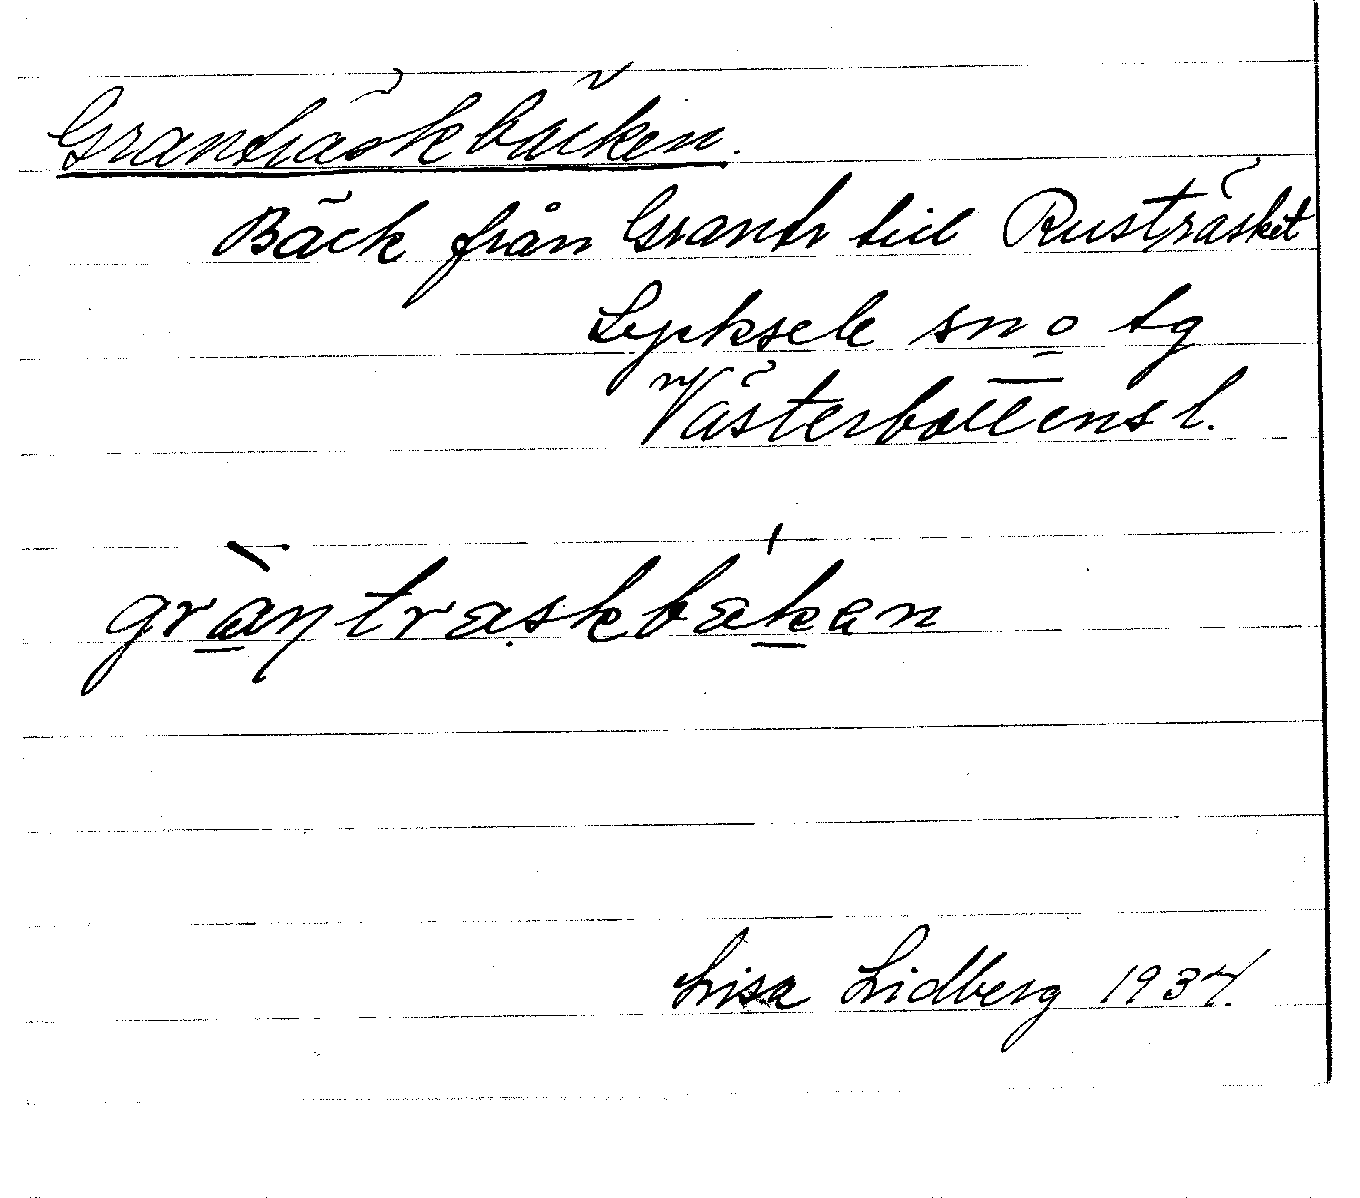 Granträskbäcken.
Bäck från Grantr till Rusträsket
Lycksele sn o tg
Västerbottens l.
gràntræskbækan
Lisa Lidberg 1934.